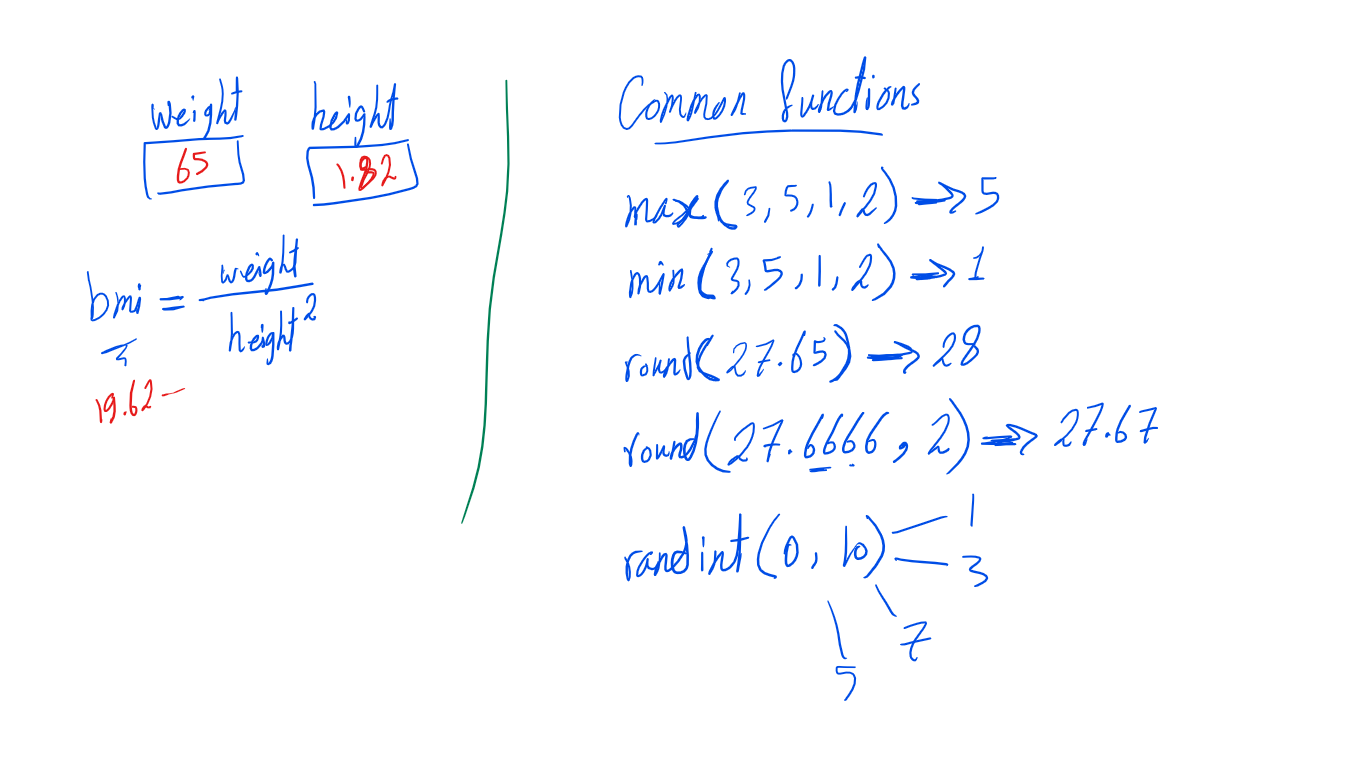 weight height
65 1.82
bmi = weight / height²
19.62 —
Common functions
max(3, 5, 1, 2) ⇒ 5
min(3, 5, 1, 2) ⇒ 1
round(27.65) ⇒ 28
round(27.6666, 2) ⇒ 27.67
randint(0, 10) 1
3
7
5